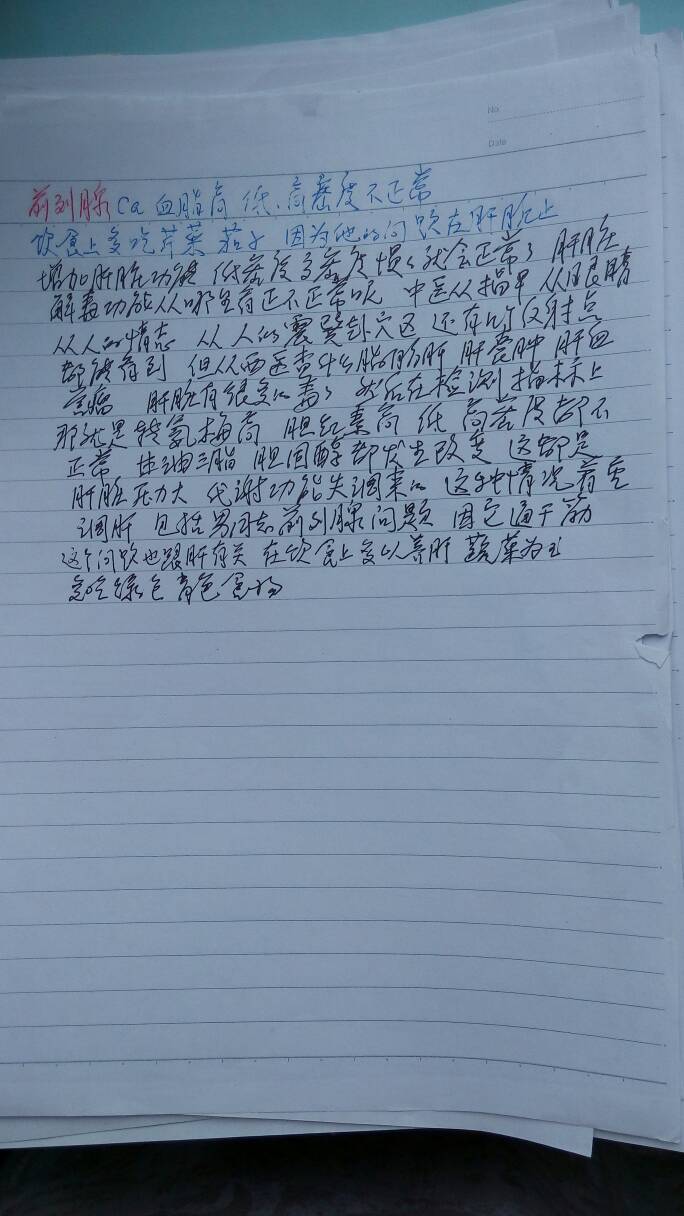 No.
Date
前列腺 Ca 血脂高 低、高密度不正常
饮食上多吃芹菜 茄子 因为他的问题在肝脏上
增加肝脏功能 低密度高密度慢慢就会正常了 肝脏
解毒功能从哪里看正不正常呢 中医从指甲 从眼睛
从人的情态 从人的 穴区 还有 反射点
都能看到 但从西医 什么脂肪肝 肝囊肿 肝血
管瘤 肝脏有很多的毒了 然后在检测指标上
那就是转氨酶高 胆红素高 低 高密度都不
正常 甘油三脂 胆固醇都发生改变 这都是
肝脏压力大 代谢功能失调来的 这种情况着重
调肝 包括男同志前列腺问题 因它通于筋
这个问题也跟肝有关 在饮食上多以养肝 蔬菜为主
多吃绿色 青色食物